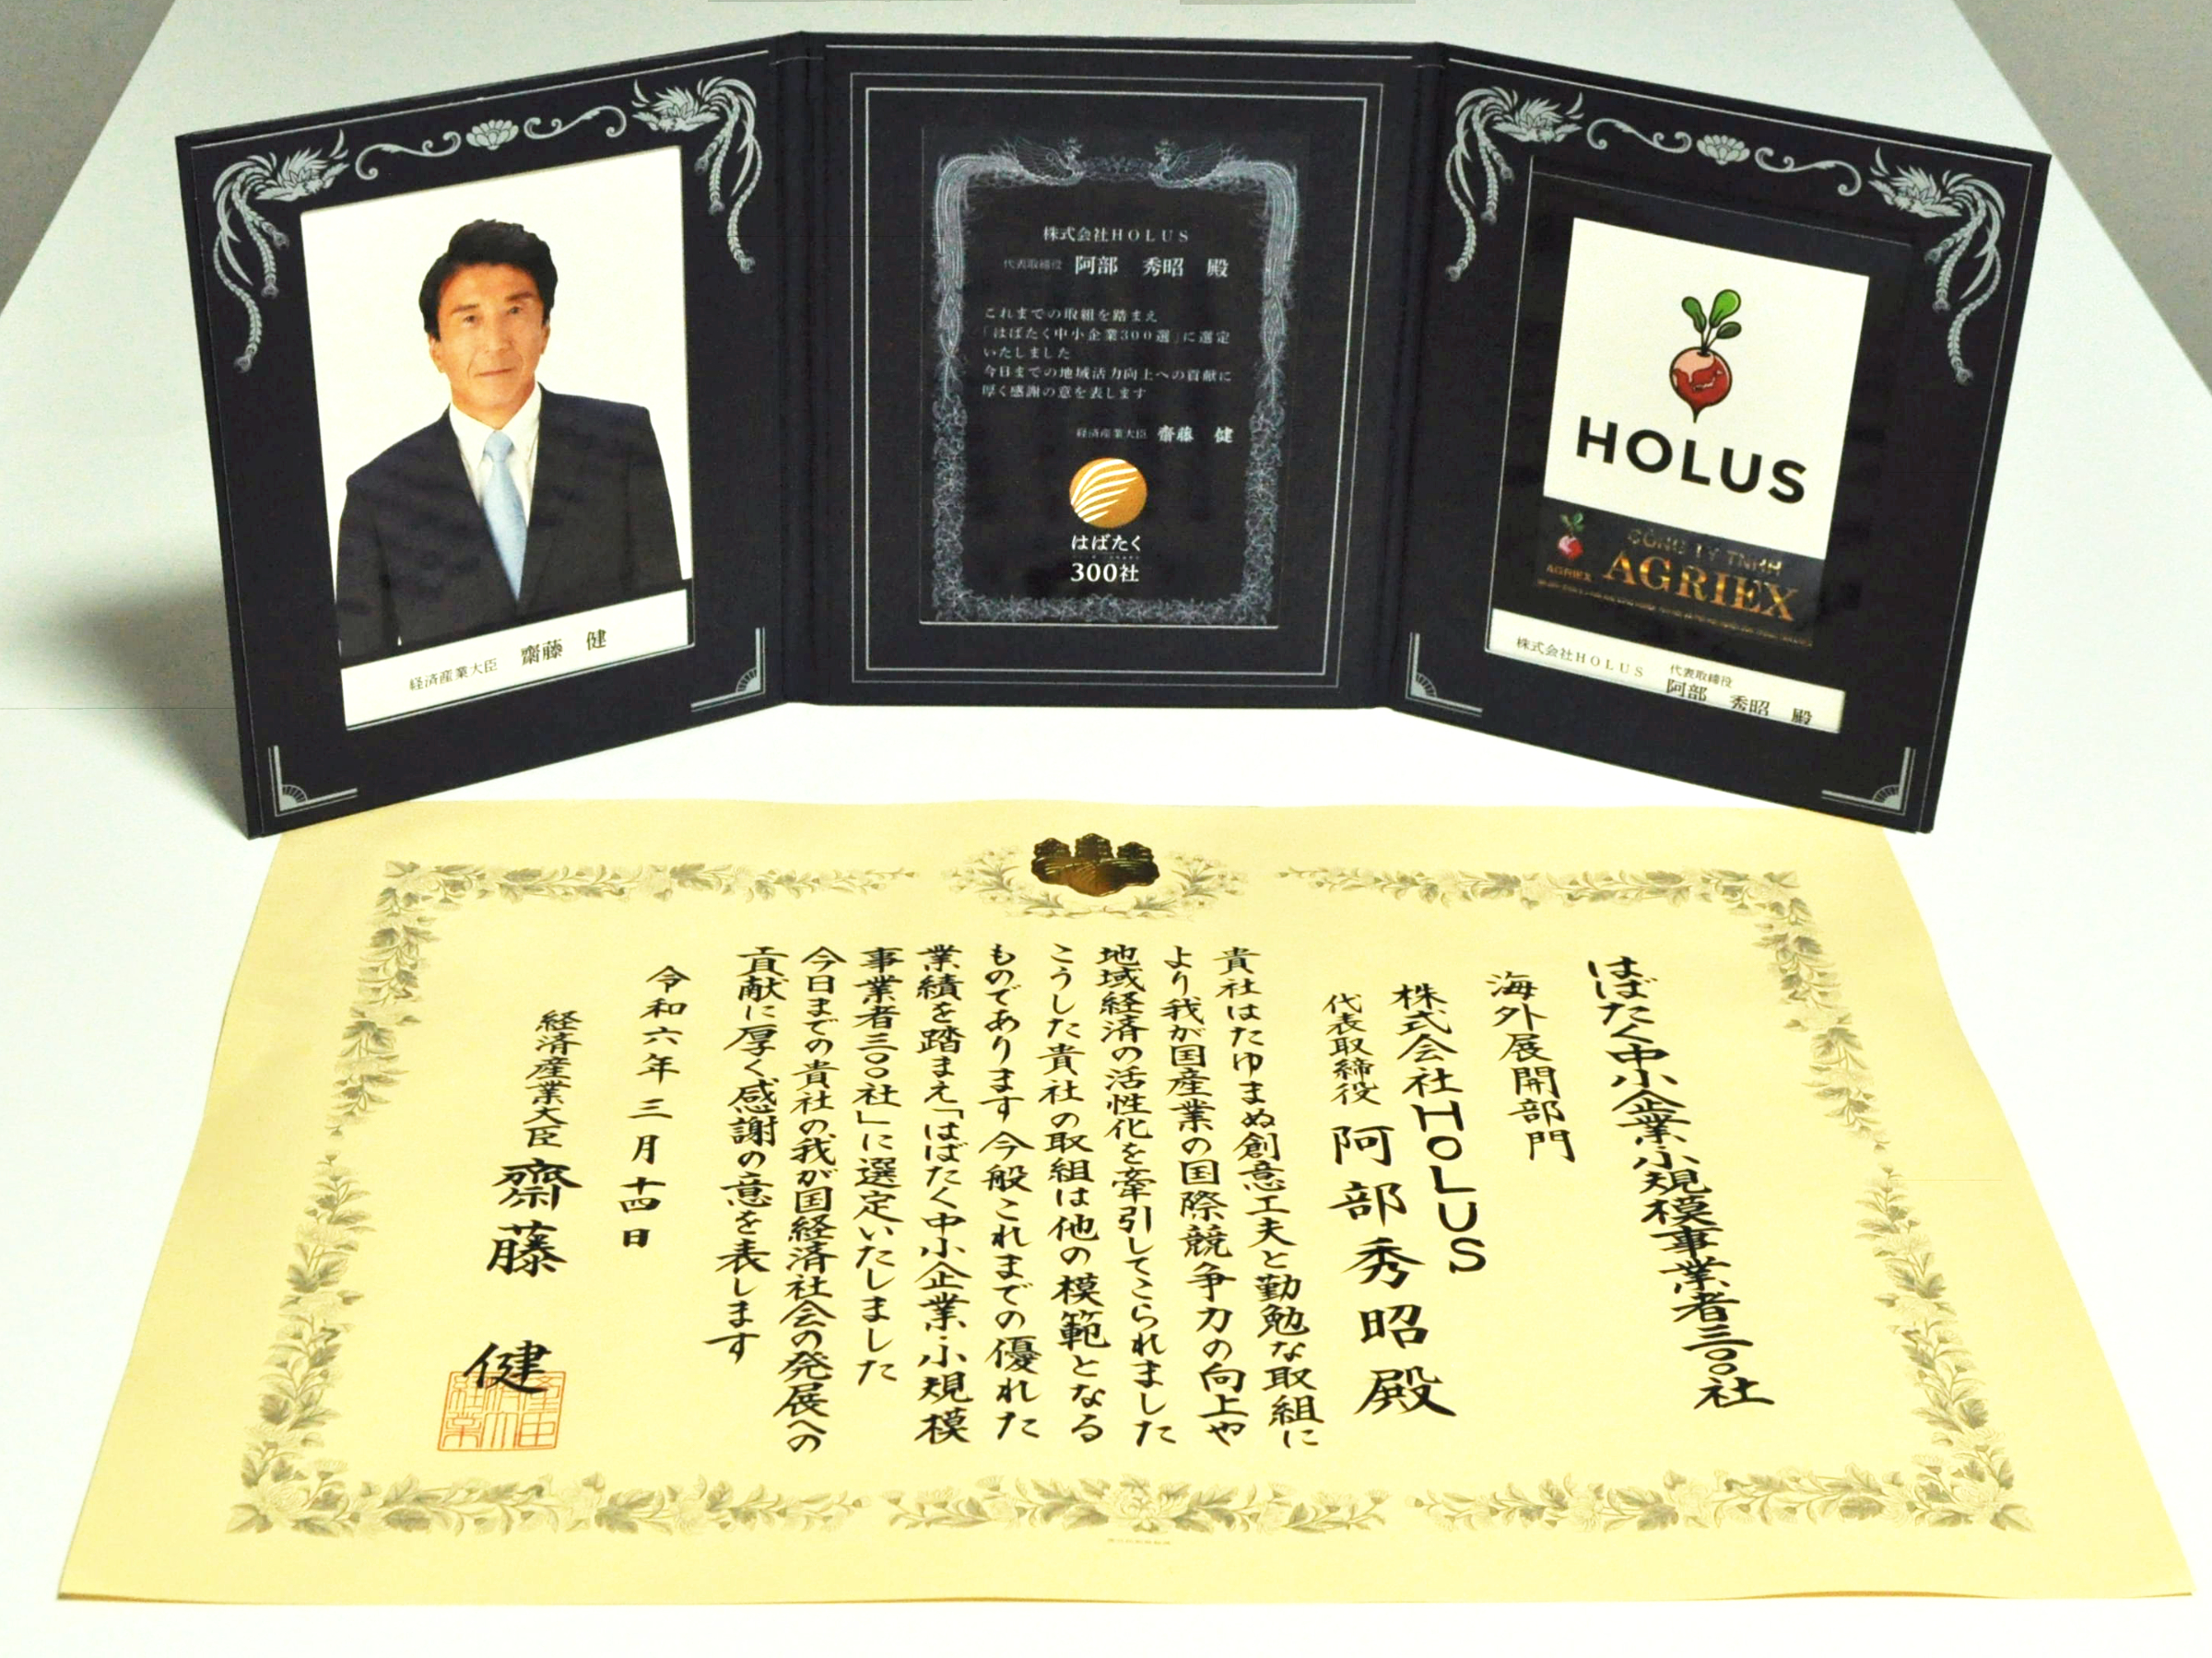 経済産業大臣 齋藤 健
株式会社HOLUS
代表取締役 阿部 秀昭 殿
これまでの取組を踏まえ
「はばたく中小企業300選」に選定
いたしました
今日までの地域活力向上への貢献に
厚く感謝の意を表します
経済産業大臣 齋藤 健
はばたく
300社
HOLUS
CÔNG TY TNHH
AGRIEX
AGRIEX
株式会社HOLUS 代表取締役
阿部 秀昭 殿
はばたく中小企業・小規模事業者三〇〇社
海外展開部門
株式会社HOLUS
代表取締役 阿部秀昭殿
貴社はたゆまぬ創意工夫と勤勉な取組に
より我が国産業の国際競争力の向上や
地域経済の活性化を牽引してこられました
こうした貴社の取組は他の模範となる
ものであります今般これまでの優れた
業績を踏まえ「はばたく中小企業・小規模
事業者三〇〇社」に選定いたしました
今日までの貴社の我が国経済社会の発展への
貢献に厚く感謝の意を表します
令和六年三月十四日
経済産業大臣 齋藤 健